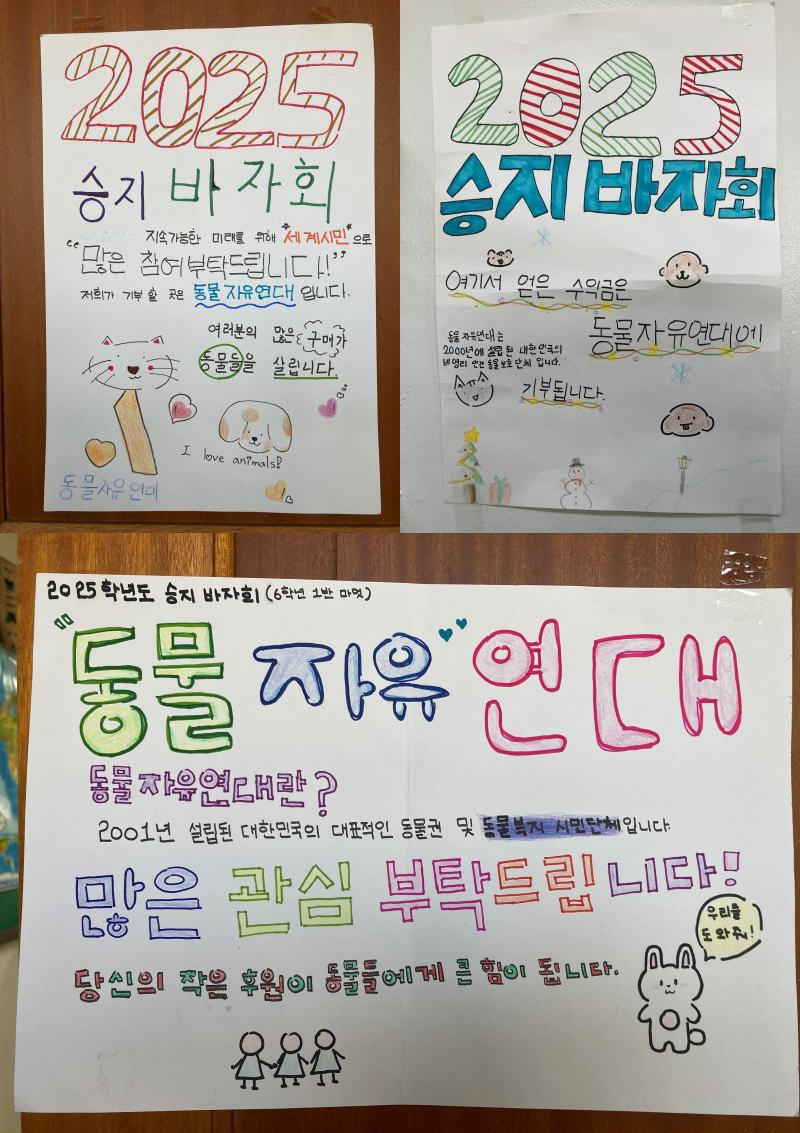 2025
승지 바자회
지속가능한 미래를 위해 "세계시민"으로
"많은 참여부탁드립니다!"
저희가 기부 할 곳은 동물자유연대 입니다.
여러분의 많은 구매가
동물들을 살립니다.
I love animals!
동물자유연대
2025
승지 바자회
여기서 얻은 수익금은
동물자유연대에
동물 자유연대는
2000년에 설립된 대한민국의
비영리 민간 동물 보호 단체 입니다.
기부됩니다.
2025학년도 승지 바자회(6학년 1반 마켓)
"동물 자유 연대
동물자유연대란?
2001년 설립된 대한민국의 대표적인 동물권 및 동물복지 시민단체입니다
많은 관심 부탁드립니다!
우리를
도와줘!
당신의 작은 후원이 동물들에게 큰 힘이 됩니다.